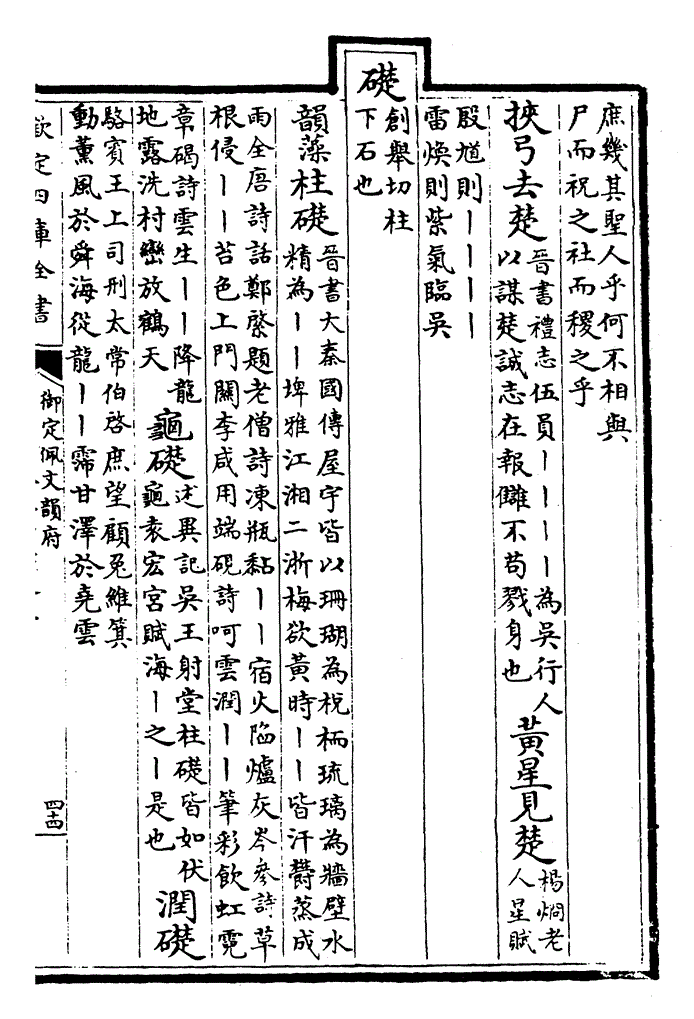 庶幾其聖人乎何不相與
尸而祝之社而稷之乎
挾弓去楚
晉書禮志伍員丨丨丨丨為吳行人
以謀楚誠志在報讎不苟戮身也
黃星見楚
楊烱老
人星賦
殷馗則丨丨丨丨
雷煥則紫氣臨吳
礎
創舉切柱
下石也
韻藻
柱礎
晉書大秦國傳屋宇皆以珊瑚為棁栭琉璃為牆壁水
精為丨丨埤雅江湘二浙梅欲黃時丨丨皆汗鬱蒸成
雨全唐詩話鄭綮題老僧詩凍瓶黏丨丨宿火陷爐灰岑參詩草
根侵丨丨苔色上門闗李咸用端硯詩呵雲潤丨丨筆彩飲虹霓
章碣詩雲生丨丨降龍
地露洗村巒放鶴天
龜礎
述異記吳王射堂柱礎皆如伏
龜袁宏宮賦海丨之丨是也
潤礎
駱賓王上司刑太常伯啓庶望顧兎維箕
動薰風於舜海從龍丨丨霈甘澤於堯雲
欽定四庫全書
御定佩文韻府
四十四